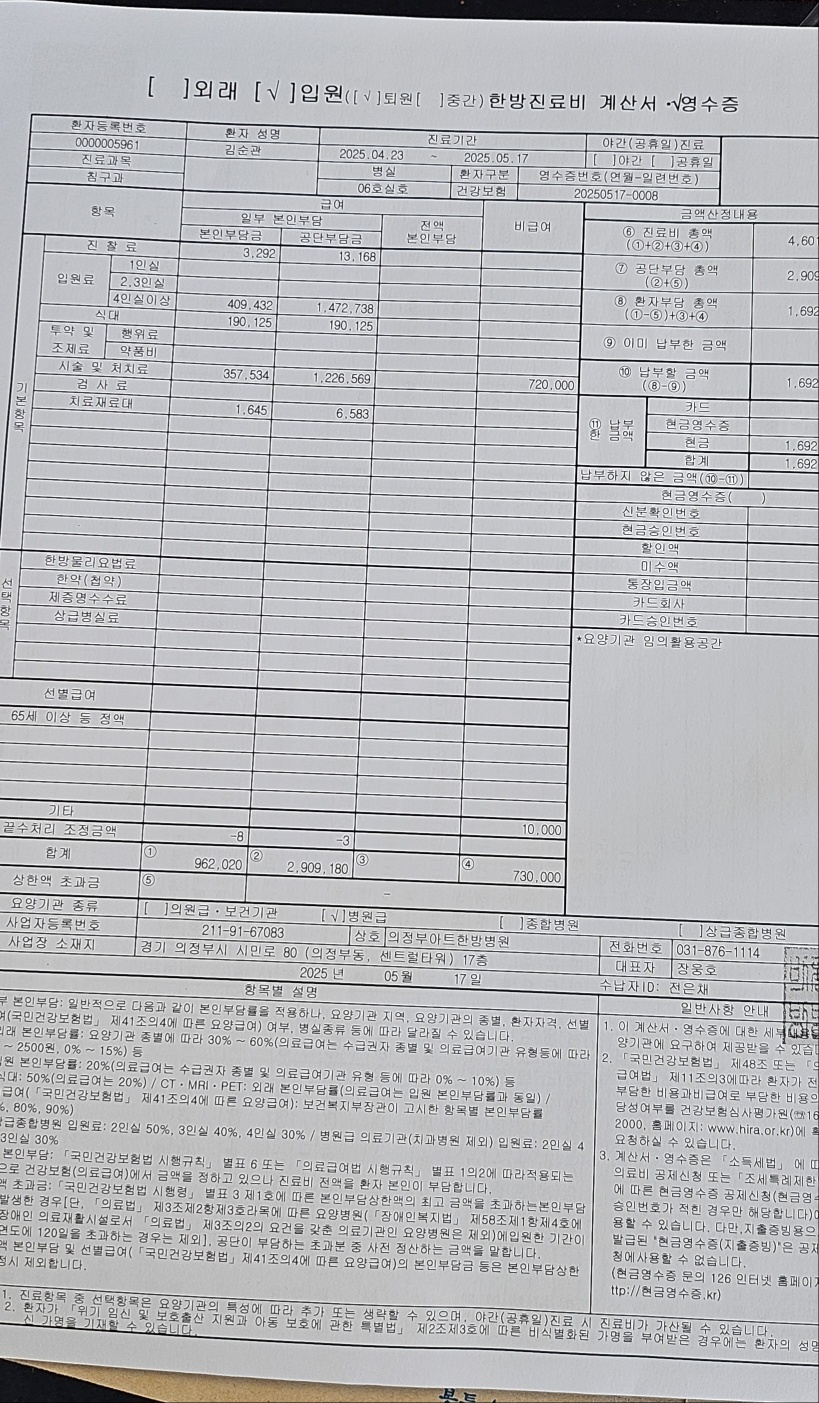 [ ]외래 [√]입원([√]퇴원[ ]중간) 한방진료비 계산서 ·√영수증
환자등록번호 환자 성명 진료기간 야간(공휴일)진료
0000005961 김순관 2025.04.23 ~ 2025.05.17 [ ]야간 [ ]공휴일
진료과목 병실 환자구분 영수증번호(연월-일련번호)
침구과 06호실호 건강보험 20250517-0008
항목 급여 비급여 금액산정내용
일부 본인부담 전액 본인부담
본인부담금 공단부담금
기본항목
진 찰 료 3,292 13,168
입원료 1인실
2,3인실
4인실이상 409,432 1,472,738
식대 190,125 190,125
투약 및 조제료 행위료
약품비
시술 및 처치료 357,534 1,226,569
검 사 료 720,000
치료재료대 1,645 6,583
선택항목
한방물리요법료
한약(첩약)
제증명수수료
상급병실료
선별급여
65세 이상 등 정액
기타
끝수처리 조정금액 -8 -3 10,000
합계 ① 962,020 ② 2,909,180 ③ ④ 730,000
상한액 초과금 ⑤ -
⑥ 진료비 총액 (①+②+③+④) 4,601
⑦ 공단부담 총액 (②+⑤) 2,909
⑧ 환자부담 총액 (①-⑤)+③+④ 1,692
⑨ 이미 납부한 금액
⑩ 납부할 금액 (⑧-⑨) 1,692
⑪ 납부한 금액 카드
현금영수증
현금 1,692
합계 1,692
납부하지 않은 금액(⑩-⑪)
현금영수증( )
신분확인번호
현금승인번호
할인액
미수액
통장입금액
카드회사
카드승인번호
*요양기관 임의활용공간
요양기관 종류 [ ]의원급·보건기관 [√]병원급 [ ]종합병원 [ ]상급종합병원
사업자등록번호 211-91-67083 상호 의정부아트한방병원 전화번호 031-876-1114
사업장 소재지 경기 의정부시 시민로 80 (의정부동, 센트럴타워) 17층 대표자 장웅호
2025 년 05월 17 일 수납자ID: 전은채
항목별 설명
부 본인부담: 일반적으로 다음과 같이 본인부담률을 적용하나, 요양기관 지역, 요양기관의 종별, 환자자격, 선별
여(국민건강보험법」 제41조의4에 따른 요양급여) 여부, 병실종류 등에 따라 달라질 수 있습니다.
외래 본인부담률: 요양기관 종별에 따라 30% ~ 60%(의료급여는 수급권자 종별 및 의료급여기관 유형등에 따라
~ 2500원, 0% ~ 15%) 등
원 본인부담률: 20%(의료급여는 수급권자 종별 및 의료급여기관 유형 등에 따라 0% ~ 10%) 등
식대: 50%(의료급여는 20%) / CT·MRI·PET: 외래 본인부담률(의료급여는 입원 본인부담률과 동일) /
급여(「국민건강보험법」 제41조의4에 따른 요양급여): 보건복지부장관이 고시한 항목별 본인부담률
%, 80%, 90%)
급종합병원 입원료: 2인실 50%, 3인실 40%, 4인실 30% / 병원급 의료기관(치과병원 제외) 입원료: 2인실 4
3인실 30%
본인부담: 「국민건강보험법 시행규칙」 별표 6 또는 「의료급여법 시행규칙」 별표 1의2에 따라적용되는
으로 건강보험(의료급여)에서 금액을 정하고 있으나 진료비 전액을 환자 본인이 부담합니다.
액 초과금: 「국민건강보험법 시행령」 별표 3 제1호에 따른 본인부담상한액의 최고 금액을 초과하는본인부담
발생한 경우[단, 「의료법」 제3조제2항제3호라목에 따른 요양병원(「장애인복지법」 제58조제1항제4호에
장애인 의료재활시설로서 「의료법」 제3조의2의 요건을 갖춘 의료기관인 요양병원은 제외)에입원한 기간이
연도에 120일을 초과하는 경우는 제외], 공단이 부담하는 초과분 중 사전 정산하는 금액을 말합니다.
액 본인부담 및 선별급여(「국민건강보험법」제41조의4에 따른 요양급여)의 본인부담금 등은 본인부담상한
정시 제외합니다.
일반사항 안내
1. 이 계산서·영수증에 대한 세부
양기관에 요구하여 제공받을 수 있습
2. 「국민건강보험법」 제48조 또는 「의
급여법」 제11조의3에따라 환자가 전
부담한 비용과비급여로 부담한 비용의
당성여부를 건강보험심사평가원(☎16
2000, 홈페이지: www.hira.or.kr)에 확
요청하실 수 있습니다.
3. 계산서·영수증은 「소득세법」에 따
의료비 공제신청 또는 「조세특례제한
에 따른 현금영수증 공제신청(현금영수
승인번호가 적힌 경우만 해당합니다)에
용할 수 있습니다. 다만,지출증빙용으
발급된 "현금영수증(지출증빙)"은 공제
청에사용할 수 없습니다.
(현금영수증 문의 126 인터넷 홈페이지
ttp://현금영수증.kr)
1. 진료항목 중 선택항목은 요양기관의 특성에 따라 추가 또는 생략할 수 있으며, 야간(공휴일)진료 시 진료비가 가산될 수 있습니다.
2. 환자가 「위기 임신 및 보호출산 지원과 아동 보호에 관한 특별법」 제2조제3호에 따른 비식별화된 가명을 부여받은 경우에는 환자의 성명
신 가명을 기재할 수 있습니다.